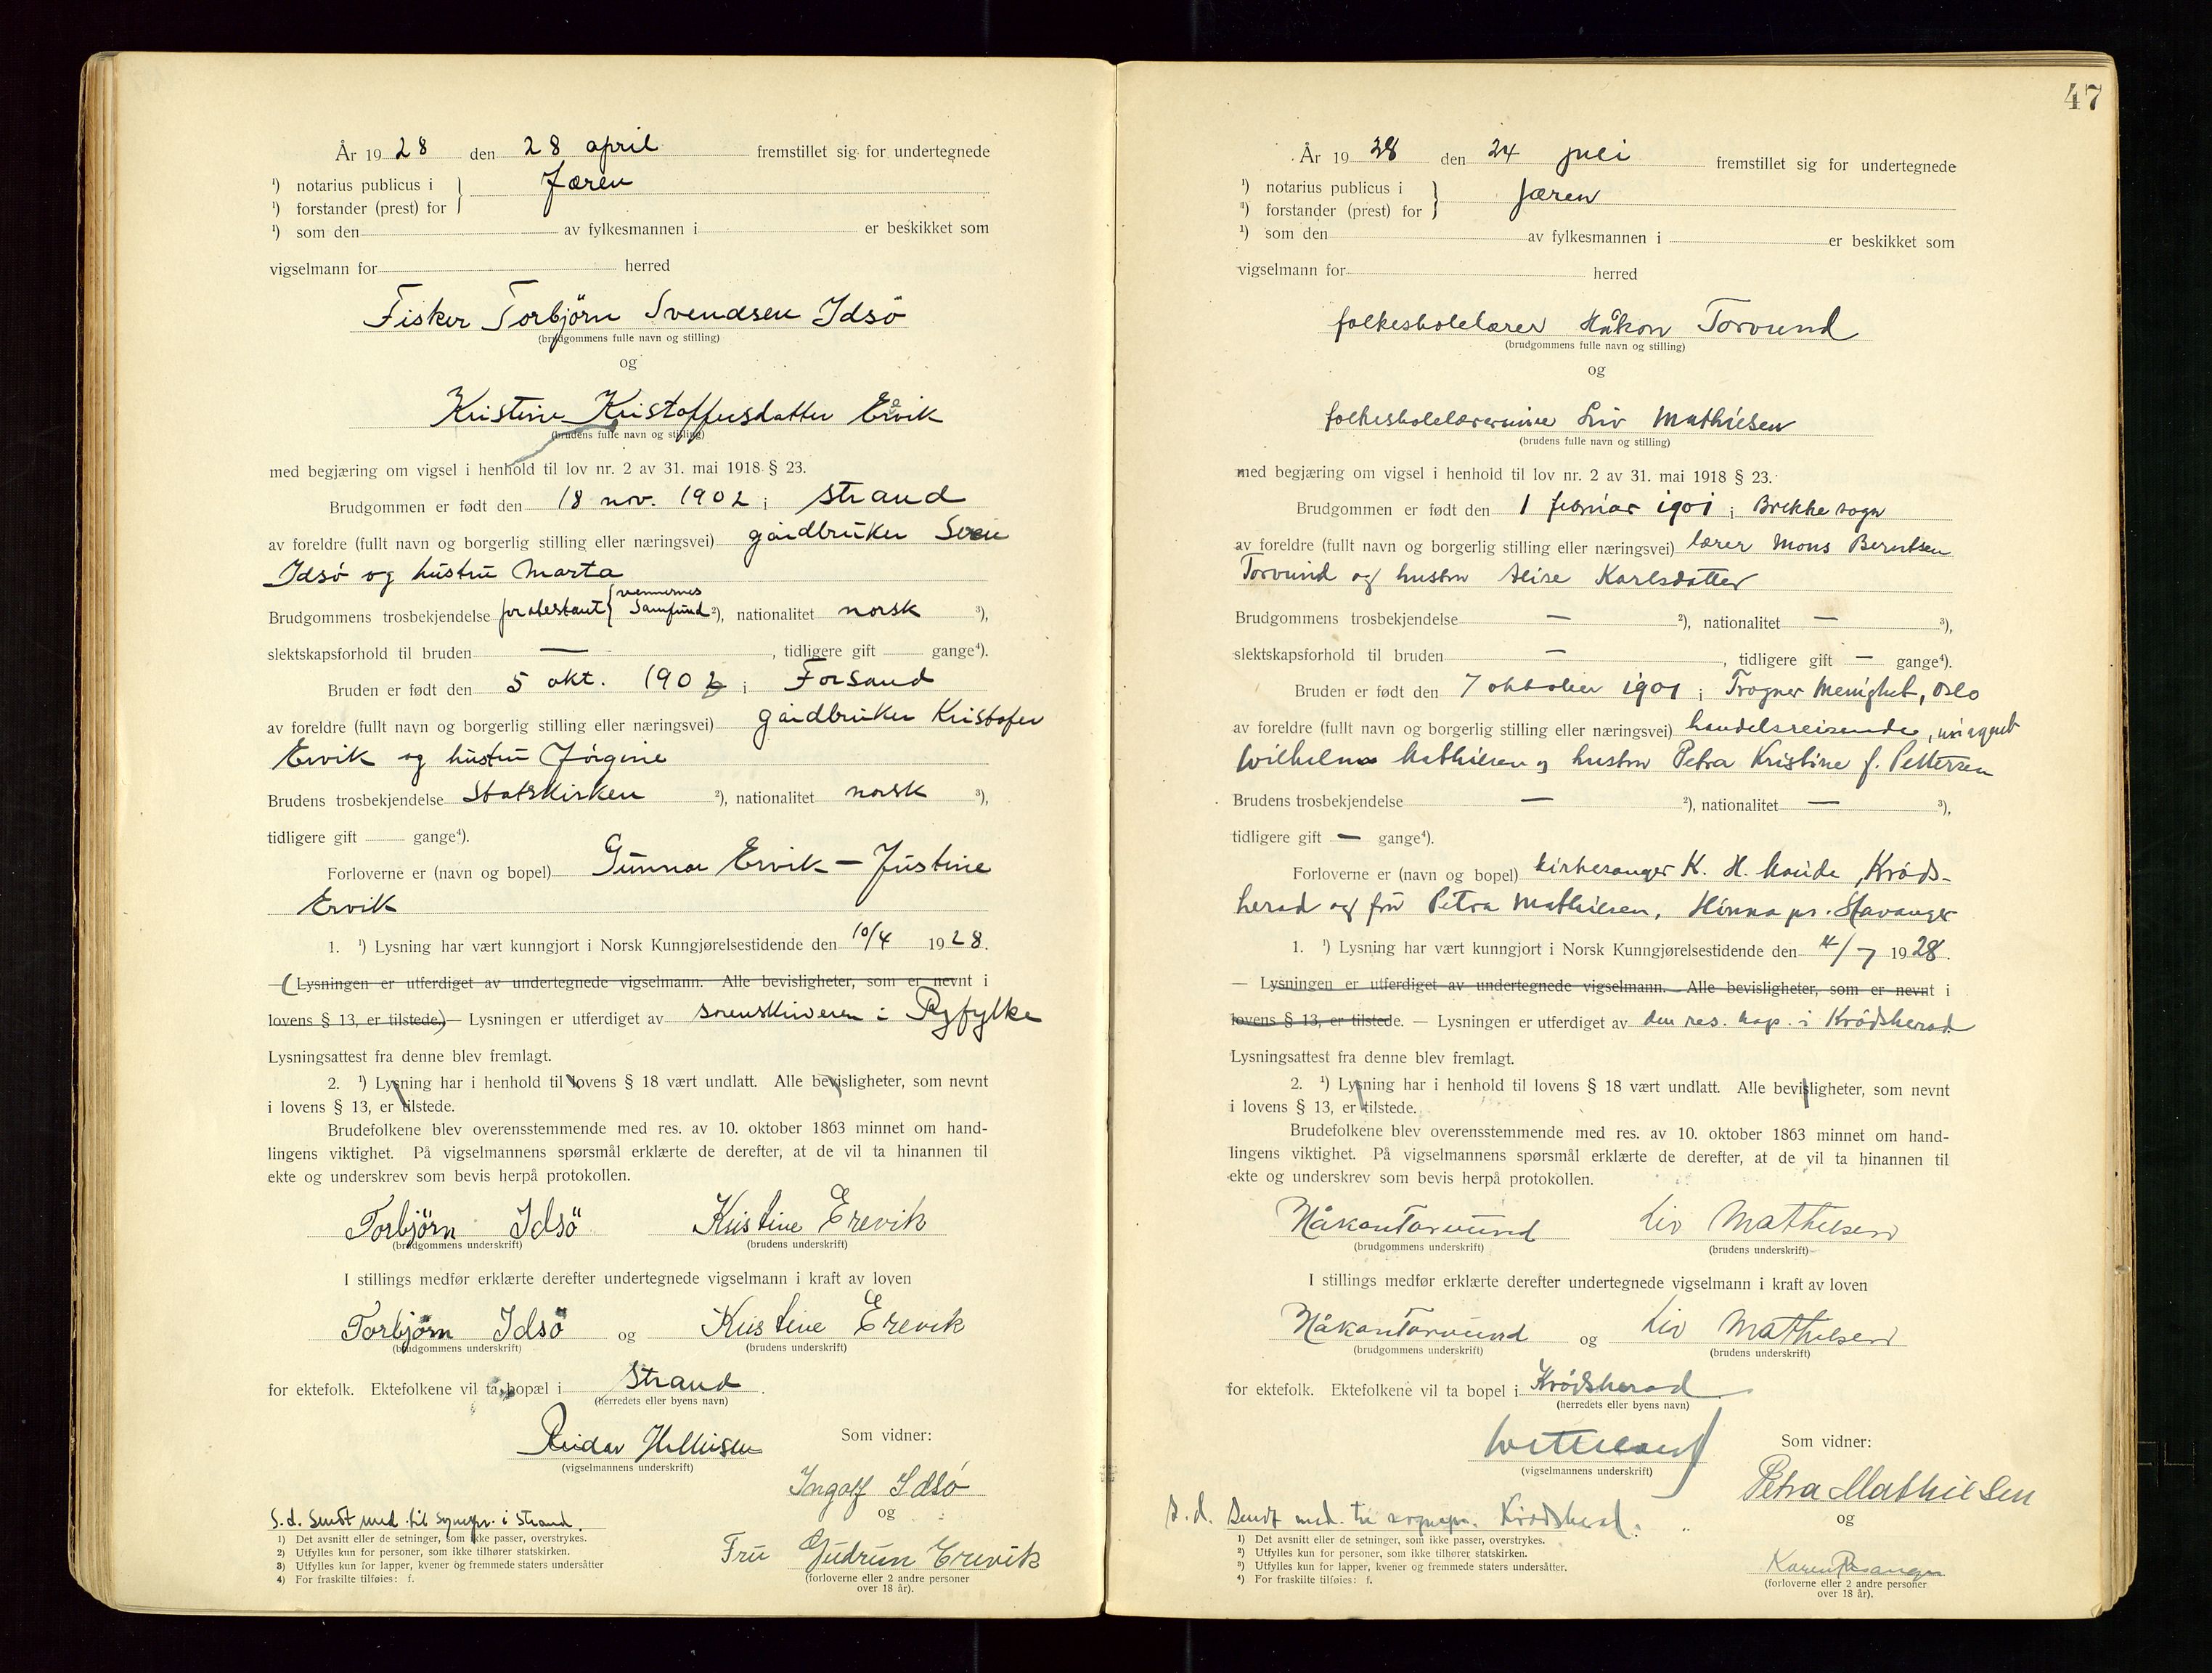 År 1928 den 28 april fremstillet sig for undertegnede
¹) notarius publicus i } Jæren
¹) forstander (prest) for
¹) som den av fylkesmannen i er beskikket som
vigselmann for herred
Fisker Torbjörn Svendsen Idsö
(brudgommens fulle navn og stilling)
og
Kristine Kristoffersdatter Ervik
(brudens fulle navn og stilling)
med begjæring om vigsel i henhold til lov nr. 2 av 31. mai 1918 § 23.
Brudgommen er født den 18 nov. 1902 i Strand
av foreldre (fullt navn og borgerlig stilling eller næringsvei) gårdbruker Sven
Idsö og hustru Marta
Brudgommens trosbekjendelse protestant { vennernes Samfund ²), nationalitet norsk ³),
slektskapsforhold til bruden — , tidligere gift gange⁴).
Bruden er født den 5 okt. 1902 i Forsand
av foreldre (fullt navn og borgerlig stilling eller næringsvei) gårdbruker Kristofer
Ervik og hustru Jörgine
Brudens trosbekjendelse Statskirken ²), nationalitet norsk ³),
tidligere gift gange⁴).
Forloverne er (navn og bopel) Gunnar Ervik — Justine
Ervik
1. ¹) Lysning har vært kunngjort i Norsk Kunngjørelsestidende den 10/4 1928.
— (Lysningen er utferdiget av undertegnede vigselmann. Alle bevisligheter, som er nevnt i
lovens § 13, er tilstede.) — Lysningen er utferdiget av sorenskriveren i Ryfylke
Lysningsattest fra denne blev fremlagt.
2. ¹) Lysning har i henhold til lovens § 18 vært undlatt. Alle bevisligheter, som nevnt
i lovens § 13, er tilstede.
Brudefolkene blev overensstemmende med res. av 10. oktober 1863 minnet om hand-
lingens viktighet. På vigselmannens spørsmål erklærte de derefter, at de vil ta hinannen til
ekte og underskrev som bevis herpå protokollen.
Torbjörn Idsö Kristine Erevik
(brudgommens underskrift) (brudens underskrift)
I stillings medfør erklærte derefter undertegnede vigselmann i kraft av loven
Torbjörn Idsö og Kristine Erevik
(brudgommens underskrift) (brudens underskrift)
for ektefolk. Ektefolkene vil ta bopæl i Strand.
(herredets eller byens navn)
Reidar
(vigselmannens underskrift)
Som vidner:
Ingolf Idsö
og
Fru Gudrun Erevik
(forloverne eller 2 andre personer
over 18 år).
S.d. Sendt med. til sognepr. i Strand.
1) Det avsnitt eller de setninger, som ikke passer, overstrykes.
2) Utfylles kun for personer, som ikke tilhører statskirken.
3) Utfylles kun for lapper, kvener og fremmede staters undersåtter
4) For fraskilte tilføies: f.
47
År 1928 den 24 juli fremstillet sig for undertegnede
¹) notarius publicus i } Jæren
¹) forstander (prest) for
¹) som den av fylkesmannen i er beskikket som
vigselmann for herred
folkeskolelærer Håkon Torvund
(brudgommens fulle navn og stilling)
og
folkeskolelærerinne Liv Mathiesen
(brudens fulle navn og stilling)
med begjæring om vigsel i henhold til lov nr. 2 av 31. mai 1918 § 23.
Brudgommen er født den 1 februar 1901 i Brekke sogn
av foreldre (fullt navn og borgerlig stilling eller næringsvei) lærer Mons Berntsen
Torvund og hustru Alise Karlsdatter
Brudgommens trosbekjendelse — ²), nationalitet — ³),
slektskapsforhold til bruden — , tidligere gift — gange⁴).
Bruden er født den 7 oktober 1901 i Frogner Menighet, Oslo
av foreldre (fullt navn og borgerlig stilling eller næringsvei) handelsreisende,
Wilhelm Mathiesen og hustru Petra Kristine f. Pettersen
Brudens trosbekjendelse — ²), nationalitet — ³),
tidligere gift — gange⁴).
Forloverne er (navn og bopel) kirkesanger K. H. , Kröds-
herad og fru Petra Mathiesen, Hinna pr. Stavanger
1. ¹) Lysning har vært kunngjort i Norsk Kunngjørelsestidende den 4/7 1928.
— Lysningen er utferdiget av undertegnede vigselmann. Alle bevisligheter, som er nevnt i
lovens § 13, er tilstede. — Lysningen er utferdiget av den res. kap. i Krödsherad
Lysningsattest fra denne blev fremlagt.
2. ¹) Lysning har i henhold til lovens § 18 vært undlatt. Alle bevisligheter, som nevnt
i lovens § 13, er tilstede.
Brudefolkene blev overensstemmende med res. av 10. oktober 1863 minnet om hand-
lingens viktighet. På vigselmannens spørsmål erklærte de derefter, at de vil ta hinannen til
ekte og underskrev som bevis herpå protokollen.
Håkon Torvund Liv Mathiesen
(brudgommens underskrift) (brudens underskrift)
I stillings medfør erklærte derefter undertegnede vigselmann i kraft av loven
Håkon Torvund og Liv Mathiesen
(brudgommens underskrift) (brudens underskrift)
for ektefolk. Ektefolkene vil ta bopel i Krödsherad
(herredets eller byens navn)
(vigselmannens underskrift)
Som vidner:
Petra Mathiesen
og
Karen
(forloverne eller 2 andre personer
over 18 år).
S. d. Sendt med. til sognepr. Krödsherad.
1) Det avsnitt eller de setninger, som ikke passer, overstrykes.
2) Utfylles kun for personer, som ikke tilhører statskirken.
3) Utfylles kun for lapper, kvener og fremmede staters undersåtter.
4) For fraskilte tilføies: f.